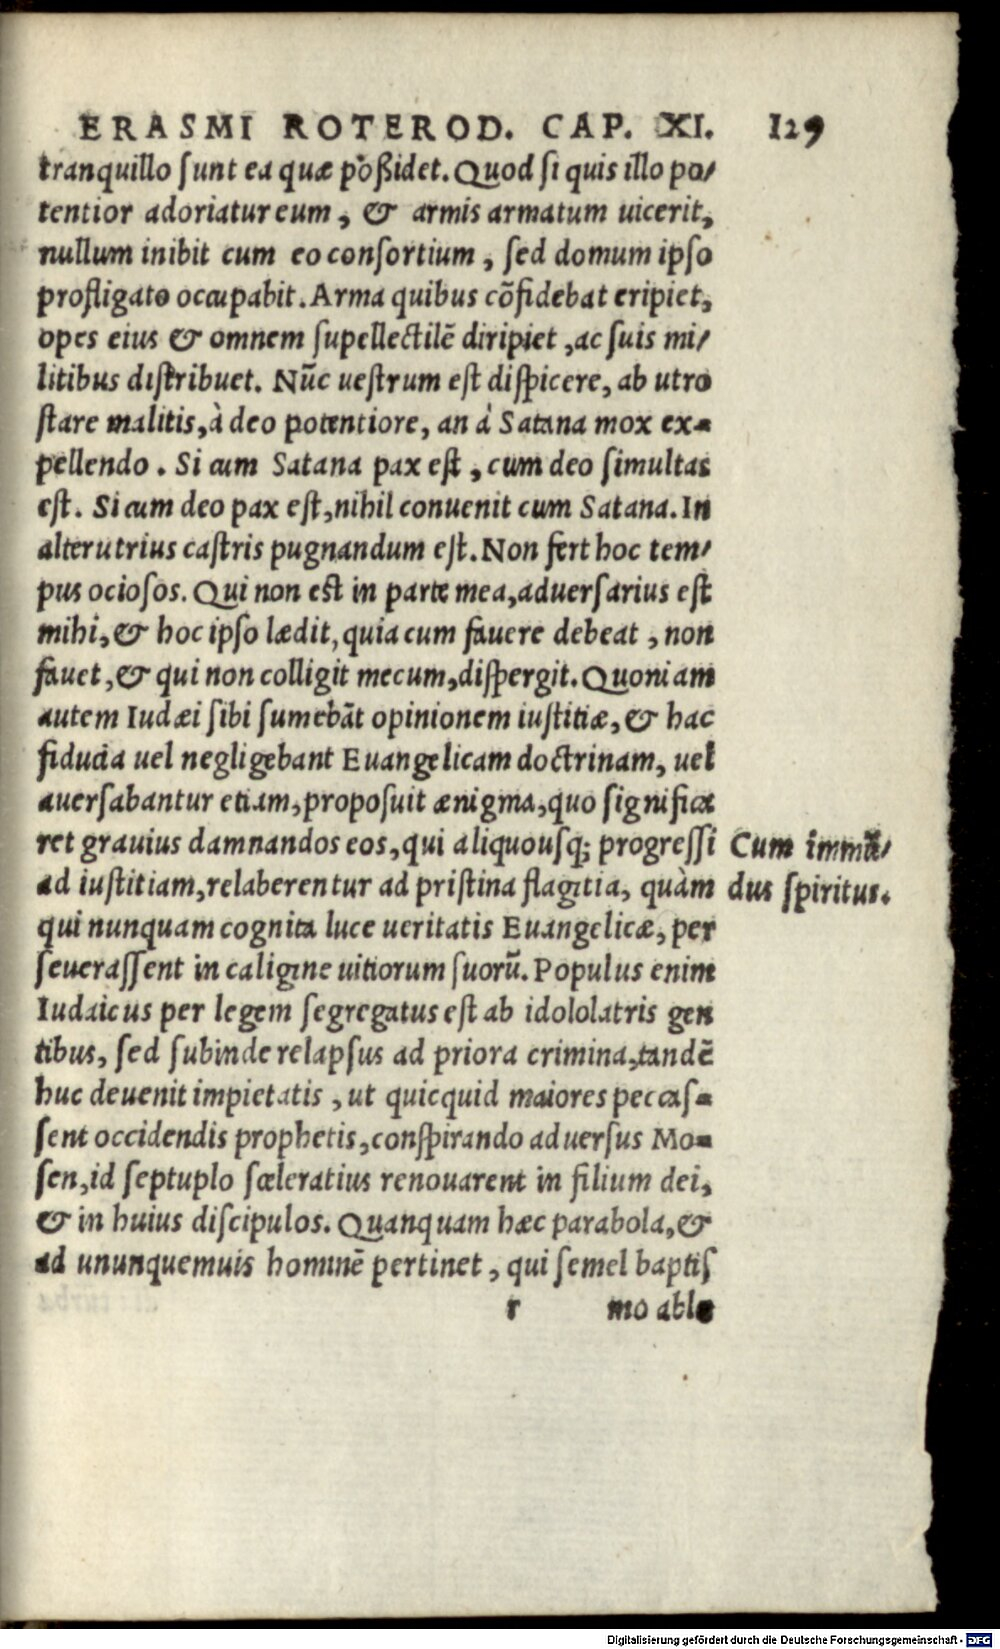 ERASMI ROTEROD. CAP. XI. 129
tranquillo ſunt ea quæ poßidet. Quod ſi quis illo po/
tentior adoriatur eum, & armis armatum uicerit,
nullum inibit cum eo conſortium, ſed domum ipſo
profligato occupabit. Arma quibus cõfidebat eripiet,
opes eius & omnem ſupellectilẽ diripiet, ac ſuis mi/
litibus diſtribuet. Nũc ueſtrum eſt diſpicere, ab utro
ſtare malitis, à deo potentiore, an à Satana mox ex-
pellendo. Si cum Satana pax eſt, cum deo ſimultas
eſt. Si cum deo pax eſt, nihil conuenit cum Satana. In
alterutrius caſtris pugnandum eſt. Non fert hoc tem/
pus ocioſos. Qui non eſt in parte mea, aduerſarius eſt
mihi, & hoc ipſo lædit, quia cum fauere debeat, non
fauet, & qui non colligit mecum, diſpergit. Quoniam
autem Iudæi ſibi ſumebãt opinionem iuſtitiæ, & hac
fiducia uel negligebant Euangelicam doctrinam, uel
auerſabantur etiam, propoſuit ænigma, quo ſignifica
ret grauius damnandos eos, qui aliquouſq; progreſſi
ad iuſtitiam, relaberentur ad priſtina flagitia, quàm
qui nunquam cognita luce ueritatis Euangelicæ, per
ſeueraſſent in caligine uitiorum ſuorũ. Populus enim
Iudaicus per legem ſegregatus eſt ab idololatris gen
tibus, ſed ſubinde relapſus ad priora crimina, tandẽ
huc deuenit impietatis, ut quicquid maiores peccaſ-
ſent occidendis prophetis, conſpirando aduerſus Mo-
ſen, id ſeptuplo ſceleratius renouarent in filium dei,
& in huius diſcipulos. Quanquam hæc parabola, &
ad ununquemuis hominẽ pertinet, qui ſemel baptiſ
r mo ablu
Cum immũ/
dus ſpiritus.
Digitalisierung gefördert durch die Deutsche Forschungsgemeinschaft - DFG